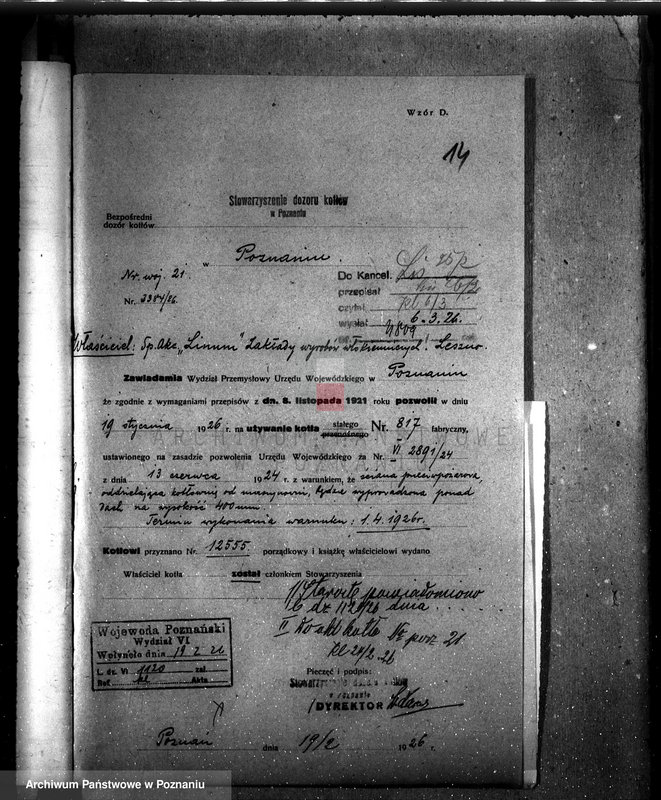 Wzór D.
14
Stowarzyszenie dozoru kotłów
w Poznaniu
Bezpośredni
dozór kotłów
w Poznaniu.
Nr. woj. 21.
Nr. 3384/26.
Do Kancel.
przepisał
czytał 6/3
wysłał 6.3.26.
Właściciel: Sp. Akc. „Linum” Zakłady wyrobów włókienniczych! Leszno.
Zawiadamia Wydział Przemysłowy Urzędu Wojewódzkiego w Poznaniu
że zgodnie z wymaganiami przepisów z dn. 8. listopada 1921 roku pozwolił w dniu
19 stycznia 1926 r. na używanie kotła stałego przenośnego Nr. 817 fabryczny,
ustawionego na zasadzie pozwolenia Urzędu Wojewódzkiego za Nr. VI 2891/24
z dnia 13 czerwca 1924 r. z warunkiem, że ściana przeciwpożarowa,
oddzielająca kotłownię od maszynowni, będzie wyprowadzona ponad
dach na wysokość 400 mm.
Termin wykonania warunku: 1.4.1926r.
Kotłowi przyznano Nr. 12555. porządkowy i książkę właścicielowi wydano
Właściciel kotła został członkiem Stowarzyszenia
I) Starostę powiadomiono
dnia
II
21
24/2.26
Wojewoda Poznański
Wydział VI
Wpłynęło dnia 19 2 26
L. dz. VI 1120 zał.
Ref. Akta
Pieczęć i podpis:
Stowarzyszenie dozoru kotłów
w Poznaniu
DYREKTOR
Poznań dnia 19/2 1926 r.
ARCHIWUM PAŃSTWOWE
Archiwum Państwowe w Poznaniu